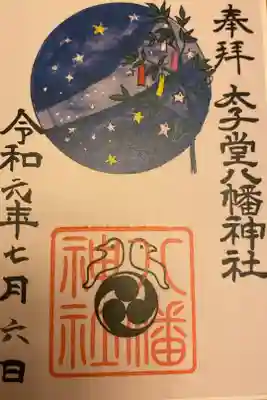 奉拝
太子堂八幡神社
八幡
神社
令和元年七月六日